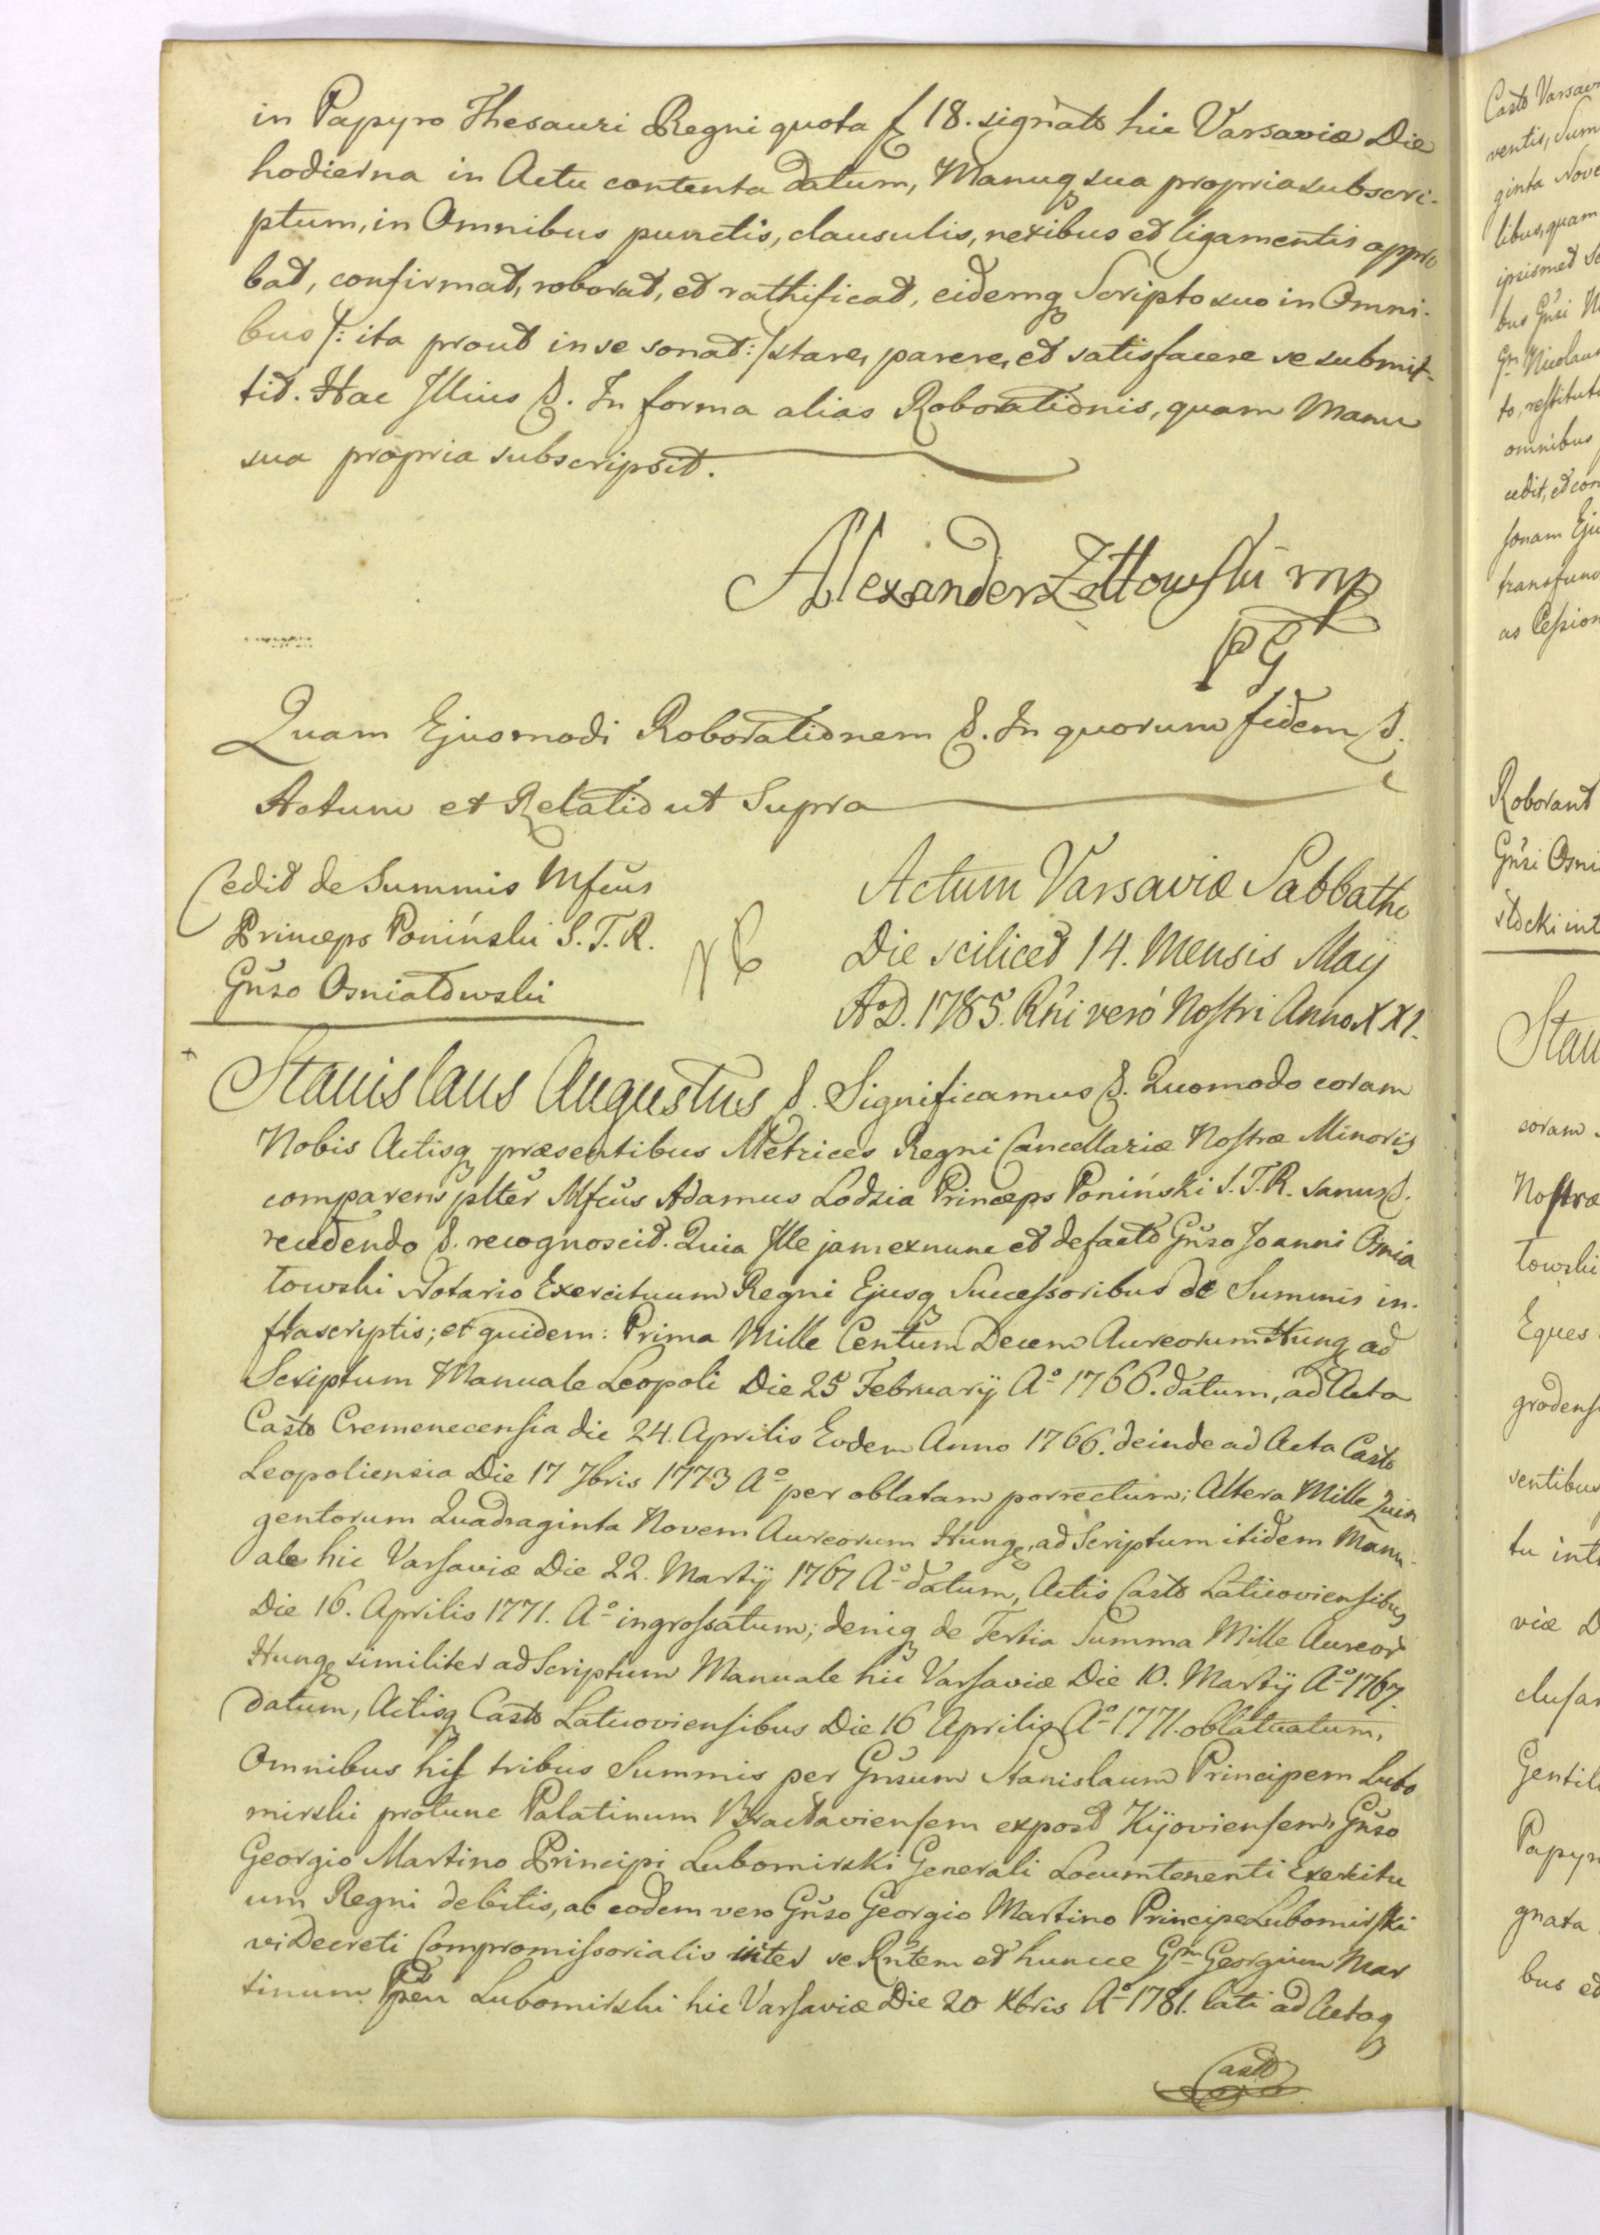 in Papyro Thesauri Regni quota f 18. signato hic Varsaviæ Die
hodierna in Actu contenta datum, Manuq sua propria subscri-
ptum, in Omnibus punctis, clausulis, nexibus et ligamentis appro
bat, confirmat, roborat, et rathificat, eidemq Scripto suo in Omni-
bus /: ita prout in se sonat :/ stare, parere, et satisfacere se submit-
tit. Hac Illius &. In forma alias Roborationis, quam Manu
sua propria subscripsit.
Alexander mp
PG
Quam Ejusmodi Roborationem &. In quorum fidem &.
Actum et Relatio ut Supra
Cedit de Summis Mfcus
Princeps Poniński S. T. R.
Gnso Osniatowski
Actum Varsaviæ Sabbatho
Die scilicet 14. Mensis Maij
A.D. 1785. Rni veró Nostri Anno XXI.
Stanislaus Augustus &. Significamus &. Quomodo coram
Nobis Actisq præsentibus Metrices Regni Cancellariæ Nostræ Minoris
comparens plter Mfcus Adamus Lodzia Princeps Poniński S. T. R. sanus &.
recedendo &. recognoscit. Quia Ille jam ex nunc et de facto Gnso Joanni Osnia
towski Notario Exercituum Regni Ejusq Successoribus de Summis in-
frascriptis; et quidem: Prima Mille Centum Decem Aureorum Hung ad
Scriptum Manuale Leopoli Die 25 Februarij Aº 1766. datum, ad Acta
Castr Cremenecensia die 24. Aprilis Eodem Anno 1766. deinde ad Acta Castr
Leopoliensia Die 17 7bris 1773 Aº per oblatam porrectum; Altera Mille Quin
gentorum Quadraginta Novem Aureorum Hung, ad Scriptum itidem Manu-
ale hic Varsaviæ Die 22. Martij 1767 Aº datum, Actis Castr Laticoviensibus
Die 16. Aprilis 1771. Aº ingrossatum; deniq de Tertia Summa Mille Aureor
Hung similiter ad Scriptum Manuale hic Varsaviæ Die 10. Martij Aº 1767.
datum, Actisq Castr Laticoviensibus Die 16 Aprilis Aº 1771. oblatuatum,
Omnibus his tribus Summis per Gnsum Stanislaum Principem Lubo
mirski protunc Palatinum Bractaviensem expost Kijoviensem, Gnso
Georgio Martino Principi Lubomirski Generali Locumtenenti Exercitu
um Regni debitis, ab eodem vero Gnso Georgio Martino Principe Lubomirski
vi Decreti Compromissorialis inter se Rntem et huncce Gm Georgium Mar
tinum Lubomirski hic Varsaviæ Die 20 Xbris Aº 1781. lati ad Actaq
Castr
Nostræ
towski
Eques
Gentil
gnata
Roborant